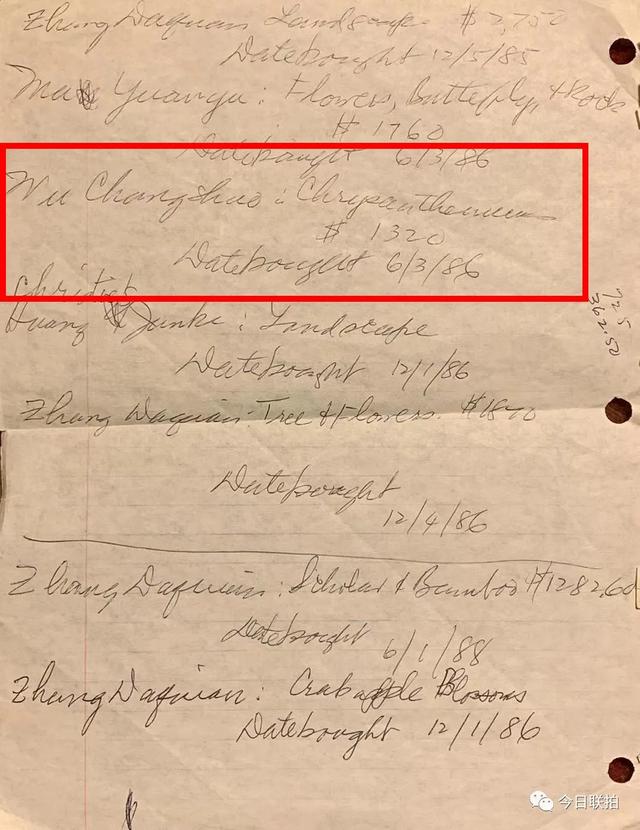 Zhang Daquan Landscape $2,750
Datebought 12/5/85
Ma Yuanyu: Flowers, Butterfly, & Rock
$ 1760
Datebought 6/3/86
Wu Changshuo: Chrysanthemum
$ 1320
Datebought 6/3/86
Christies
Huang Junbi: Landscape
Datebought 12/1/86
725
362.50
Zhang Daquian: Tree & Flowers. $1870
Datebought
12/4/86
Zhang Daquian: Scholar & Bamboo $1282.60
Datebought
6/1/88
Zhang Daquian: Crabapple Blossoms
Datebought 12/1/86
今日联拍